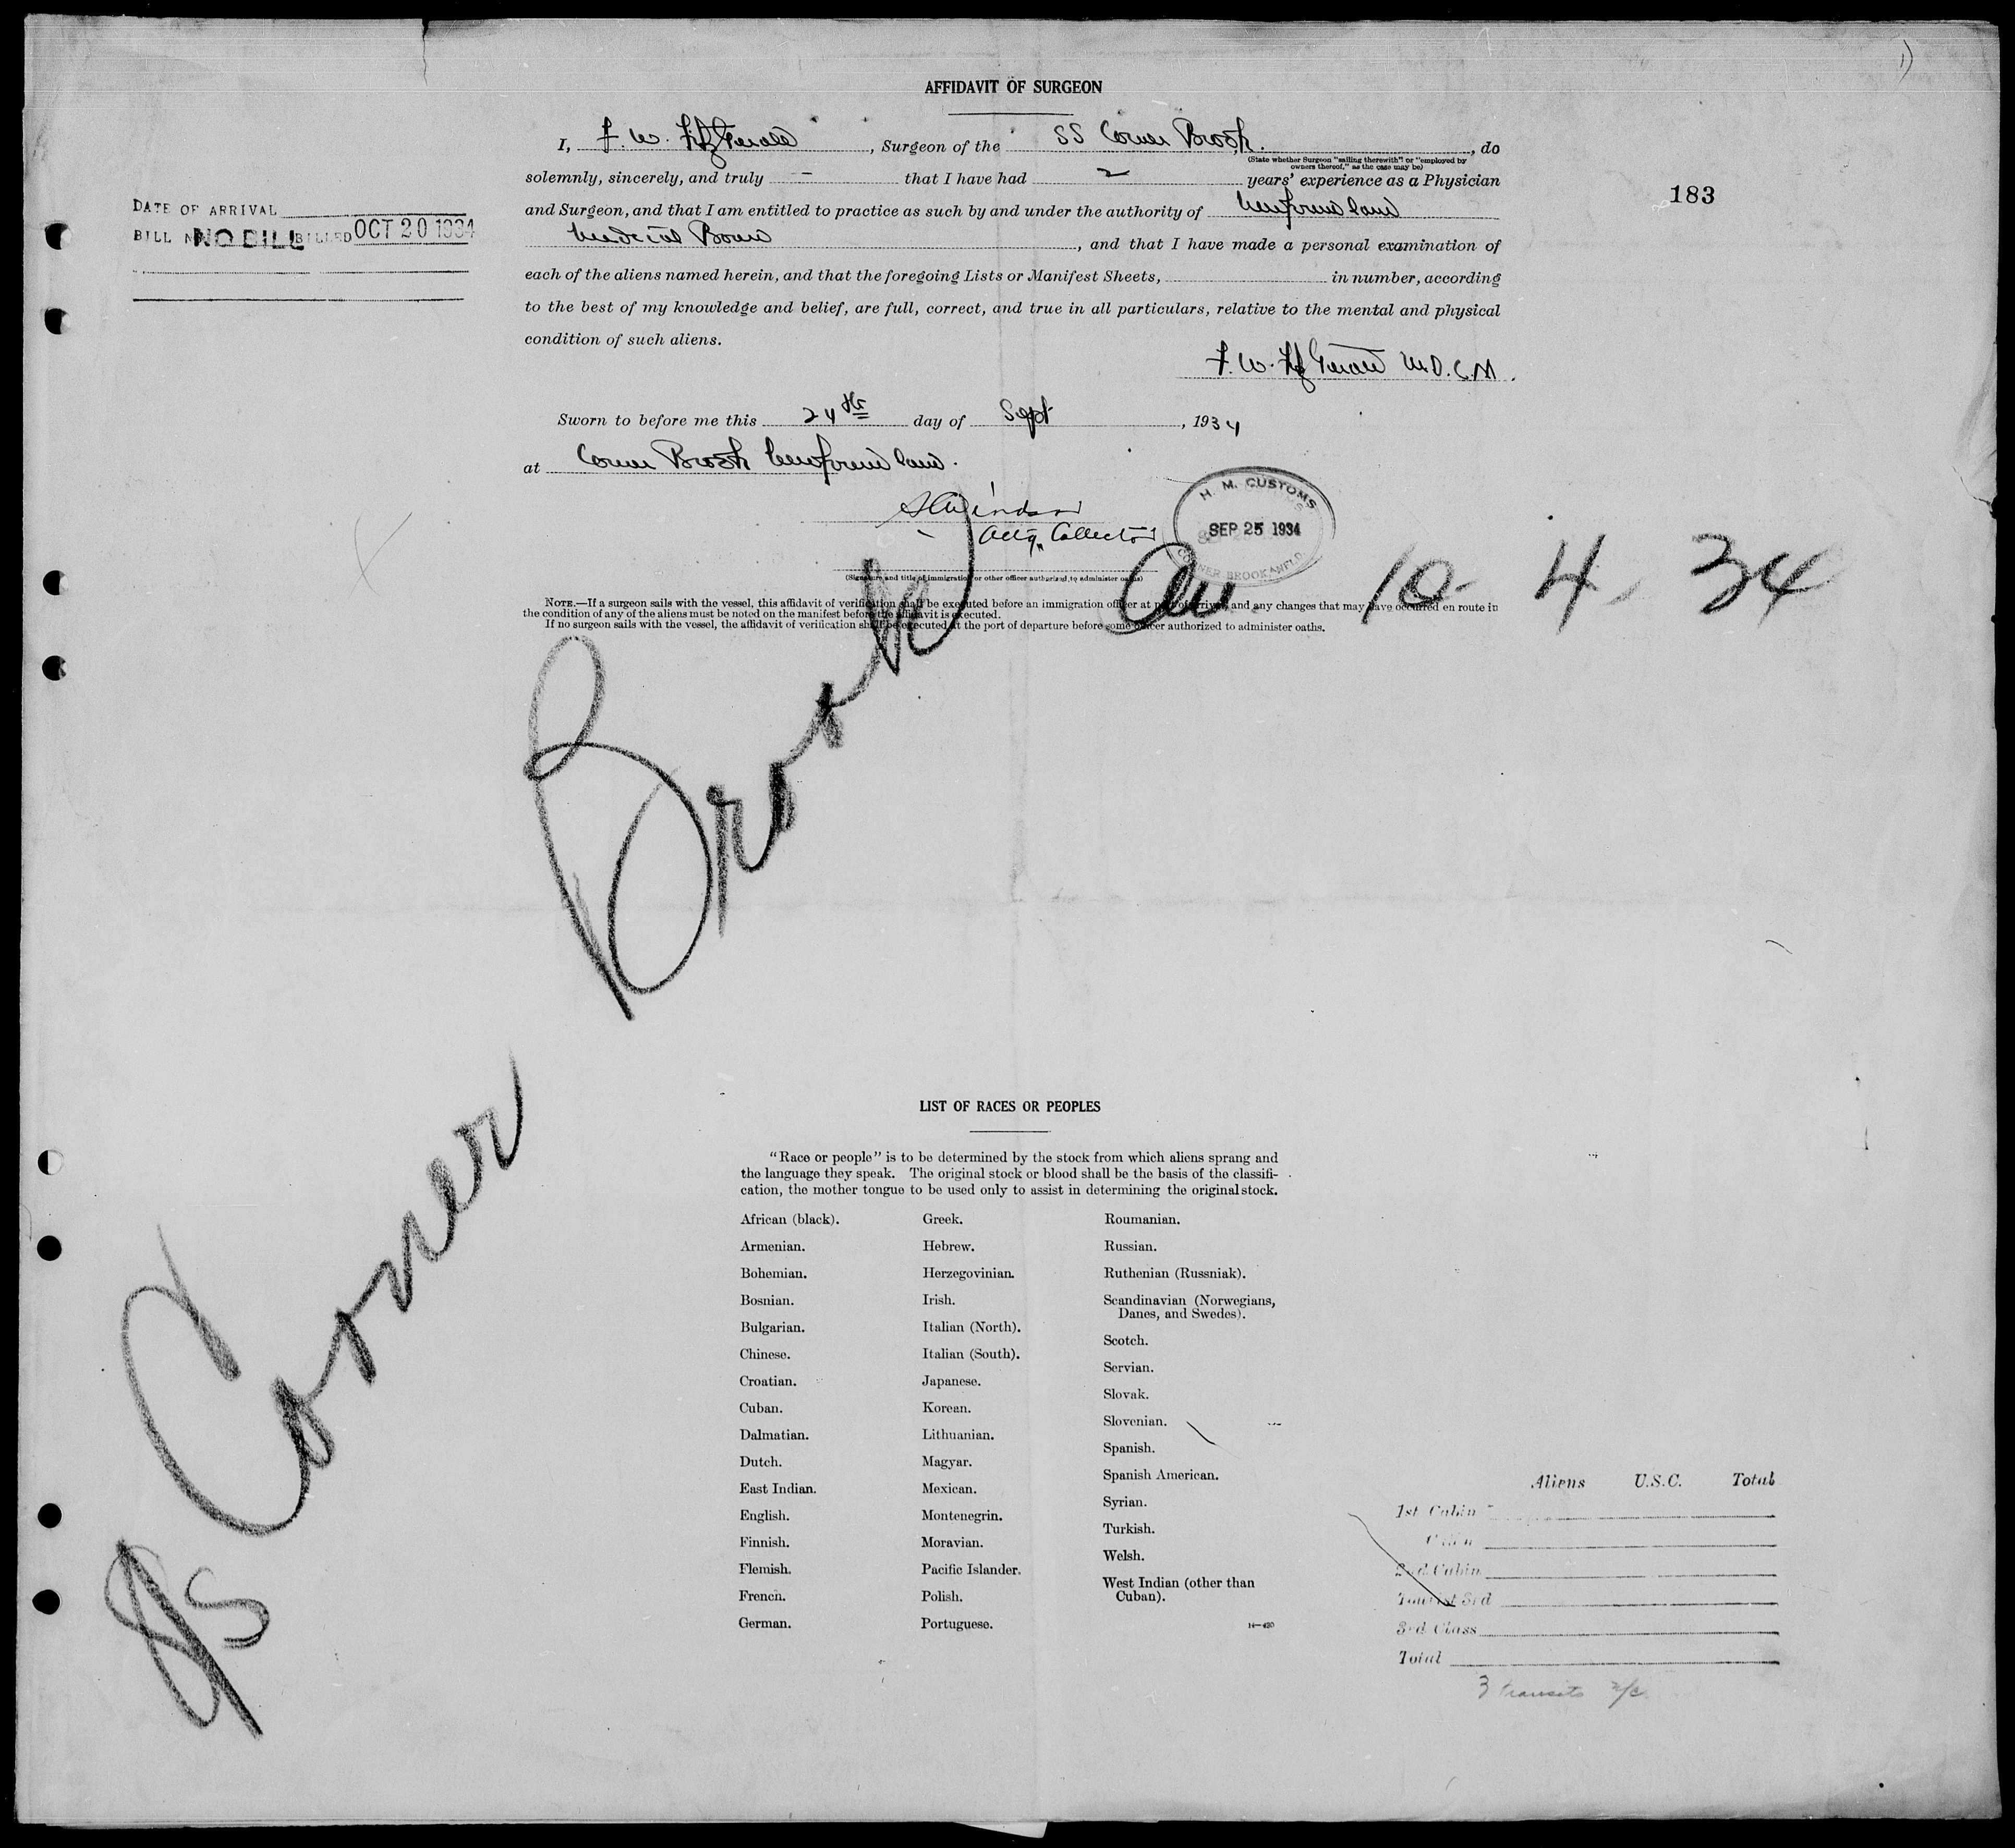 1)
AFFIDAVIT OF SURGEON
I, F. W. FitzGerald, Surgeon of the SS Corner Brook., do
(State whether Surgeon "sailing therewith" or "employed by
owners thereof," as the case may be)
solemnly, sincerely, and truly — that I have had 2 years' experience as a Physician
183
DATE OF ARRIVAL
and Surgeon, and that I am entitled to practice as such by and under the authority of Newfoundland
BILL NO BILL BILLED OCT 20 1934
Medical Board, and that I have made a personal examination of
each of the aliens named herein, and that the foregoing Lists or Manifest Sheets, in number, according
to the best of my knowledge and belief, are full, correct, and true in all particulars, relative to the mental and physical
condition of such aliens.
F. W. FitzGerald M.D.C.M.
Sworn to before me this 24th day of Sept, 1934
at Corner Brook Newfoundland.
Actg. Collector
H. M. CUSTOMS
SEP 25 1934
CORNER BROOK, NFLD
(Signature and title of immigration or other officer authorized to administer oaths)
Arr. 10-4-34
NOTE.—If a surgeon sails with the vessel, this affidavit of verification shall be executed before an immigration officer at port of arrival, and any changes that may have occurred en route in
the condition of any of the aliens must be noted on the manifest before the affidavit is executed.
If no surgeon sails with the vessel, the affidavit of verification shall be executed at the port of departure before some officer authorized to administer oaths.
S/S Corner Brook
LIST OF RACES OR PEOPLES
"Race or people" is to be determined by the stock from which aliens sprang and
the language they speak. The original stock or blood shall be the basis of the classifi-
cation, the mother tongue to be used only to assist in determining the original stock.
African (black).
Armenian.
Bohemian.
Bosnian.
Bulgarian.
Chinese.
Croatian.
Cuban.
Dalmatian.
Dutch.
East Indian.
English.
Finnish.
Flemish.
French.
German.
Greek.
Hebrew.
Herzegovinian.
Irish.
Italian (North).
Italian (South).
Japanese.
Korean.
Lithuanian.
Magyar.
Mexican.
Montenegrin.
Moravian.
Pacific Islander.
Polish.
Portuguese.
Roumanian.
Russian.
Ruthenian (Russniak).
Scandinavian (Norwegians,
Danes, and Swedes).
Scotch.
Servian.
Slovak.
Slovenian.
Spanish.
Spanish American.
Syrian.
Turkish.
Welsh.
West Indian (other than
Cuban).
14—420
Aliens U.S.C. Total
1st Cabin
Cabin
2nd Cabin
Tourist 3rd
3rd Class
Total
3 transits n/c